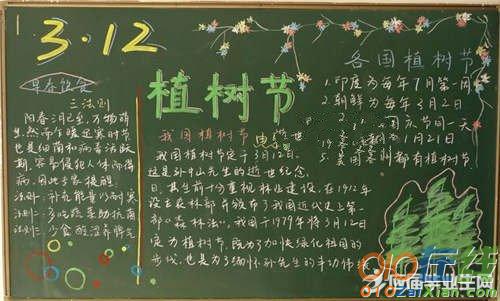 3·12
早春饮食
三法则
阳春三月至,万物萌
生,然而乍暖还寒时节
也是细菌和病毒活跃
期,容易侵犯人体而得
病,因此专家提醒
法则一:补充能量以耐寒
法则二:多吃蔬菜助抗菌
法则三:少食酸涩养脾气
植树节
我国植树节
我国植树节定于3月12日。
这是孙中山先生的逝世纪念
日,其生前十分重视林业建设,在1912年
设立农林部并颁布了我国近代史上第一
部《森林法》,我国于1979年将3月12日
定为植树节,既为了加快绿化祖国的
步伐,也是为了缅怀孙先生的丰功伟绩
各国植树节
1.印度为每年7月第一周
2.朝鲜为每年3月2日
国庆节同一天
1月21日
5.美国各州都有植树节
910在线
应届毕业生网
910ZaiXian.com